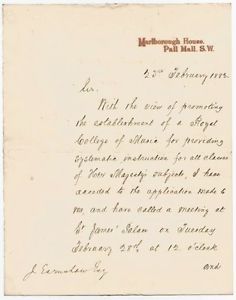 Marlborough House.
Pall Mall, S.W.
23rd February 1882.
Sir.
With the view of promoting
the establishment of a Royal
College of Music for providing
systematic instruction for all classes
of Her Majesty's subjects, I have
acceded to the application made to
me, and have called a meeting at
St James' Palace on Tuesday
February 28th at 12 o'clock
J. Earnshaw Esq
and